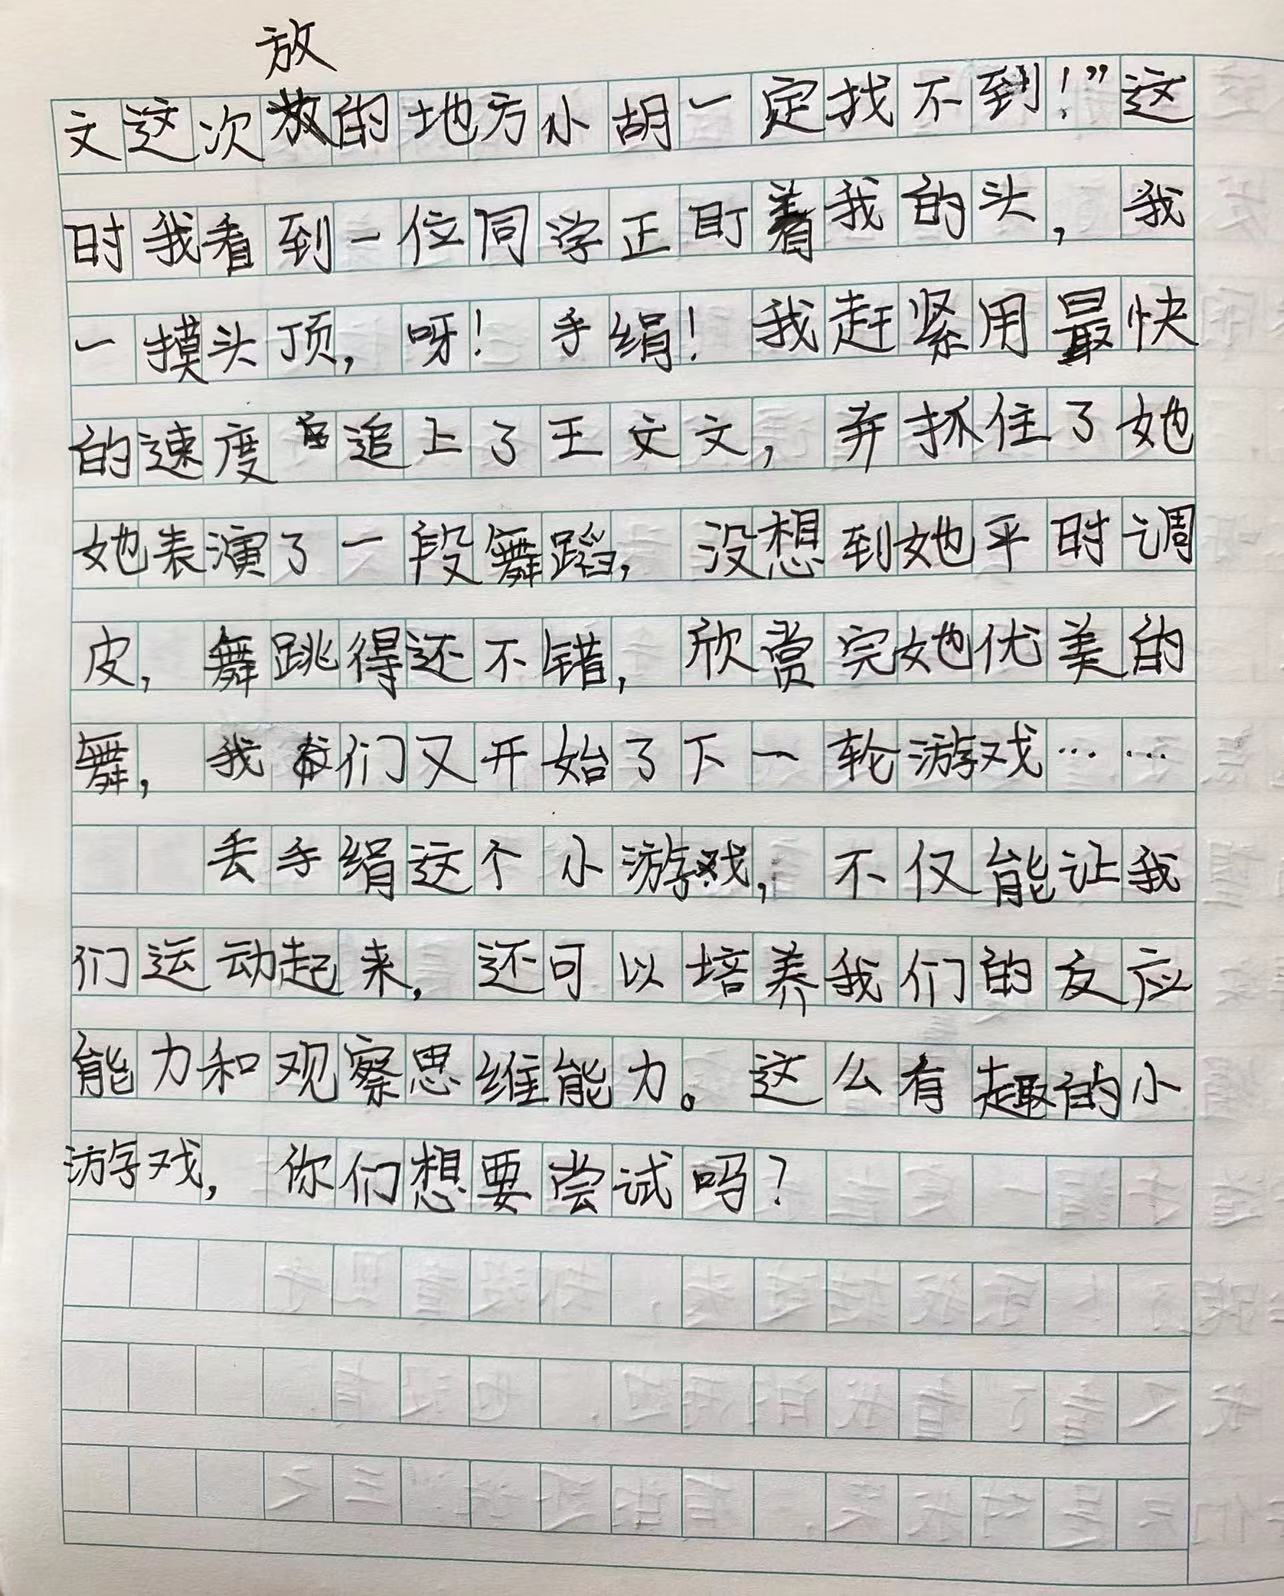 放
文这次放的地方小胡一定找不到！”这
时我看到一位同学正盯着我的头，我
一摸头顶，呀！手绢！我赶紧用最快
的速度追上了王文文，并抓住了她
她表演了一段舞蹈，没想到她平时调
皮，舞跳得还不错，欣赏完她优美的
舞，我们又开始了下一轮游戏……
丢手绢这个小游戏，不仅能让我
们运动起来，还可以培养我们的反应
能力和观察思维能力。这么有趣的小
游戏，你们想要尝试吗？